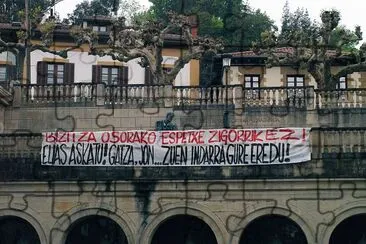 BIZITZA OSORAKO ESPETXE ZIGORRIK EZ!
ELIAS ASKATU! GAIZA, JON... ZUEN INDARRA GURE EREDU!